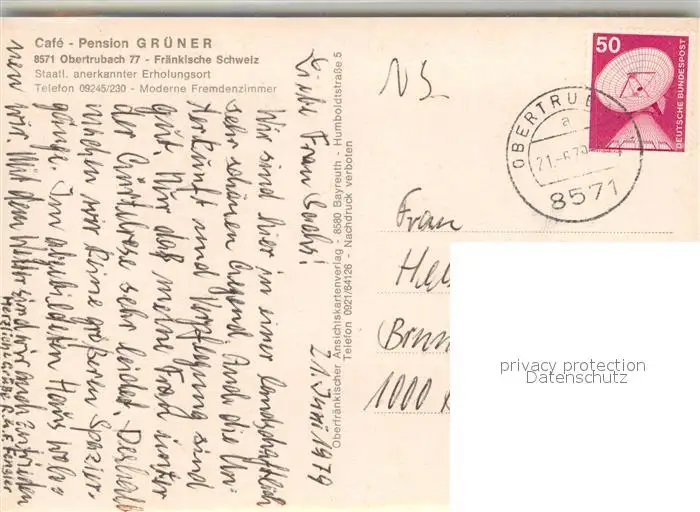 Café - Pension GRÜNER
8571 Obertrubach 77 - Fränkische Schweiz
Staatl. anerkannter Erholungsort
Telefon 09245/230 - Moderne Fremdenzimmer
21. Juni 1979
Liebe Frau
Wir sind hier in einer landschaftlich
sehr schönen Gegend. Auch die Un-
terkunft und Verpflegung sind
gut. Nur daß meine Frau unter
der Gürtelrose sehr leidet. Deshalb
machen wir keine größeren Spazier-
gänge. Im abgebildeten Haus woh-
nen wir. Mit dem Wetter sind wir auch zufrieden
Herzliche Grüße R. u. E. Fenster
Oberfränkischer Ansichtskartenverlag - 8580 Bayreuth - Humboldtstraße 5
Telefon 0921/64126 - Nachdruck verboten
NS
50
DEUTSCHE BUNDESPOST
OBERTRUB
a
21.-6.79
8571
Frau
Hel
Brun
1000
privacy protection
Datenschutz